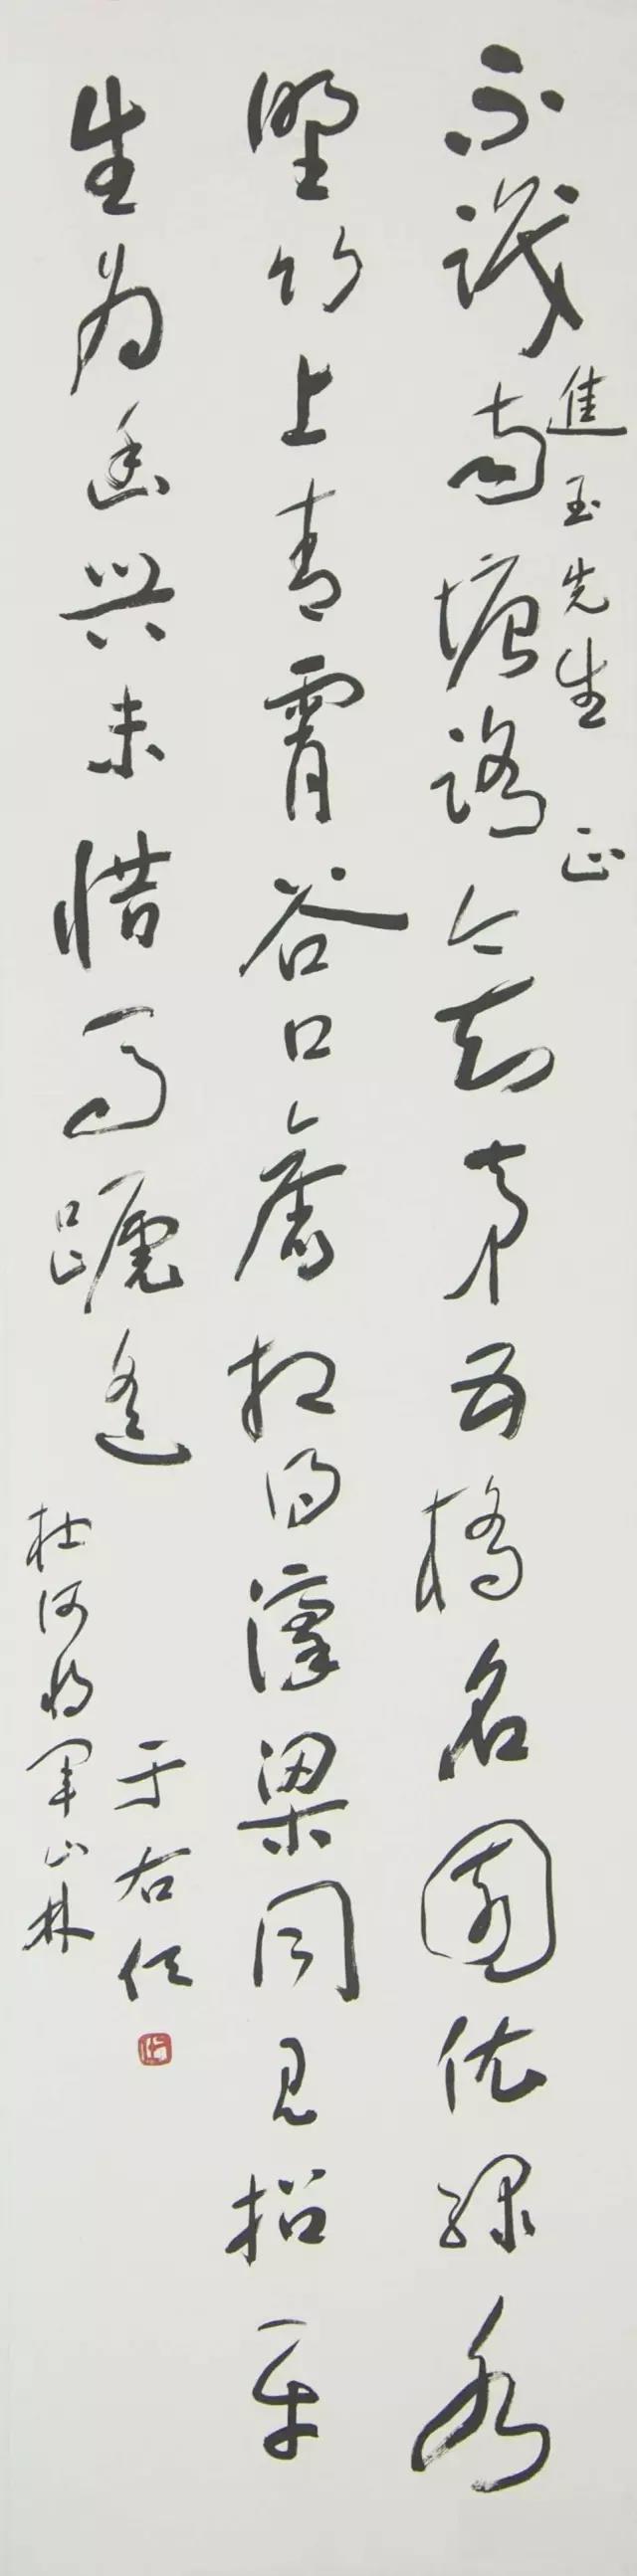 進玉先生 正
不識南塘路今知第五橋名園依綠水
野竹上青霄谷口舊相得濠梁同見招平
生為幽興未惜馬蹏遙
于右任
杜何將軍山林